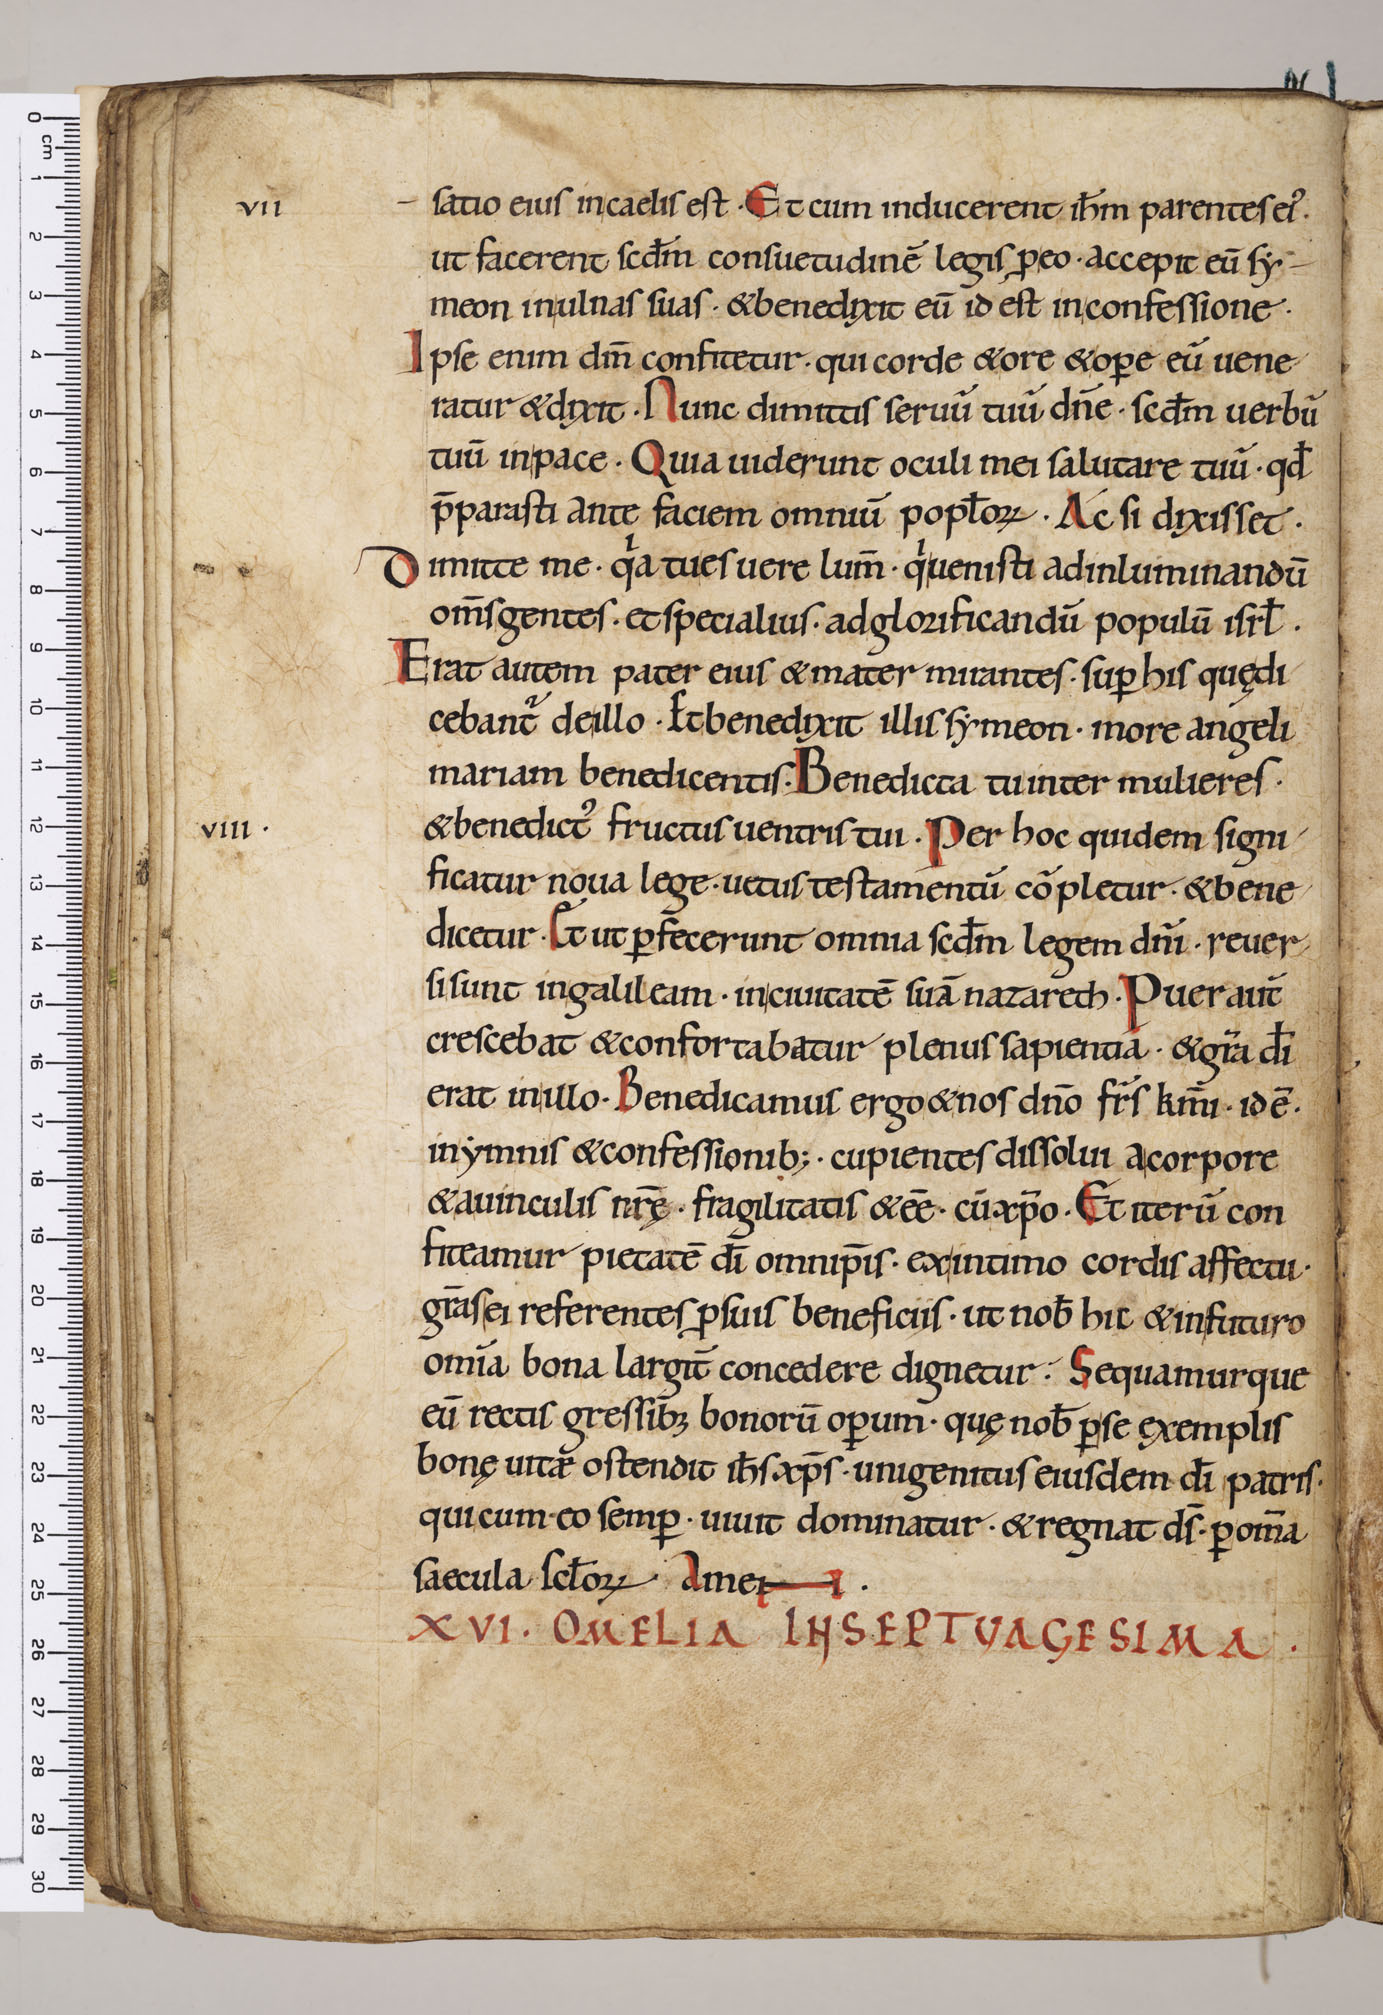 vii
satio eius incaelis est · Et cum inducerent ihm̄ parentes ei᾽ ·
ut facerent scdm̄ consuetudinē legis ꝑeo · accepit eū sẏ-
meon inulnas suas · &benedixit eū id est inconfessione ·
Ipse enim dm̄ confitetur · qui corde &ore &oꝑe eū uene
ratur &dixit · Nunc dimittis seruū tuū dn̄e · scdm̄ uerbū
tuū inpace · Quia uiderunt oculi mei salutare tuū · qđ
p̄parasti ante faciem omniū popłoꝝ · Ac si dixisset ·
Dimitte me · qⁱa tues uere lum̄ · qⁱuenisti adinluminandū
om̄sgentes · et specialius · adglorificandū populū isrł ·
Erat autem pater eius &mater mirantes · suꝑ his quędi
cebant᷑ deillo · Et benedixit illis sẏmeon · more angeli
mariam benedicentis · Benedicta tuinter mulieres ·
viii ·
&benedict᾽ fructus uentris tui · Per hoc quidem signi
ficatur noua lege · uetus testamentū cōpletur · &bene
dicetur · Et ut ꝑfecerunt omnia scdm̄ legem dn̄i · reuer
sisunt ingalileam · inciuitatē suā nazareth · Puer aut̄
crescebat &confortabatur plenus sapientia · &gr̄a dı̄
erat inillo · Benedicamus ergo &nos dn̄o fr̄s km̄i · id ē ·
inẏmnis &confessionib; · cupientes dissolui acorpore
&auinculis nr̄ę · fragilitatis &ēē · cū xp̄o · Et iterū con
fiteamur pietatē dı̄ omnip̄is · exintimo cordis affectu ·
gr̄asei referentes ꝓsuis beneficiis · ut nob̄ hic &infuturo
omīa bona largit̄ concedere dignetur · Sequamurque
eū rectis gressibꝫ bonorū oꝑum · quę nob̄ ꝑse exemplis
bonę uitæ ostendit ih̄s xp̄s · unigenitus eiusdem dı̄ patris ·
qui cum eo semꝑ · uiuit dominatur · &regnat ds̄ · ꝑ om̄a
saecula scłoꝝ · Amen ·
XVI · OMELIA IN SEPTUAGESIMA ·